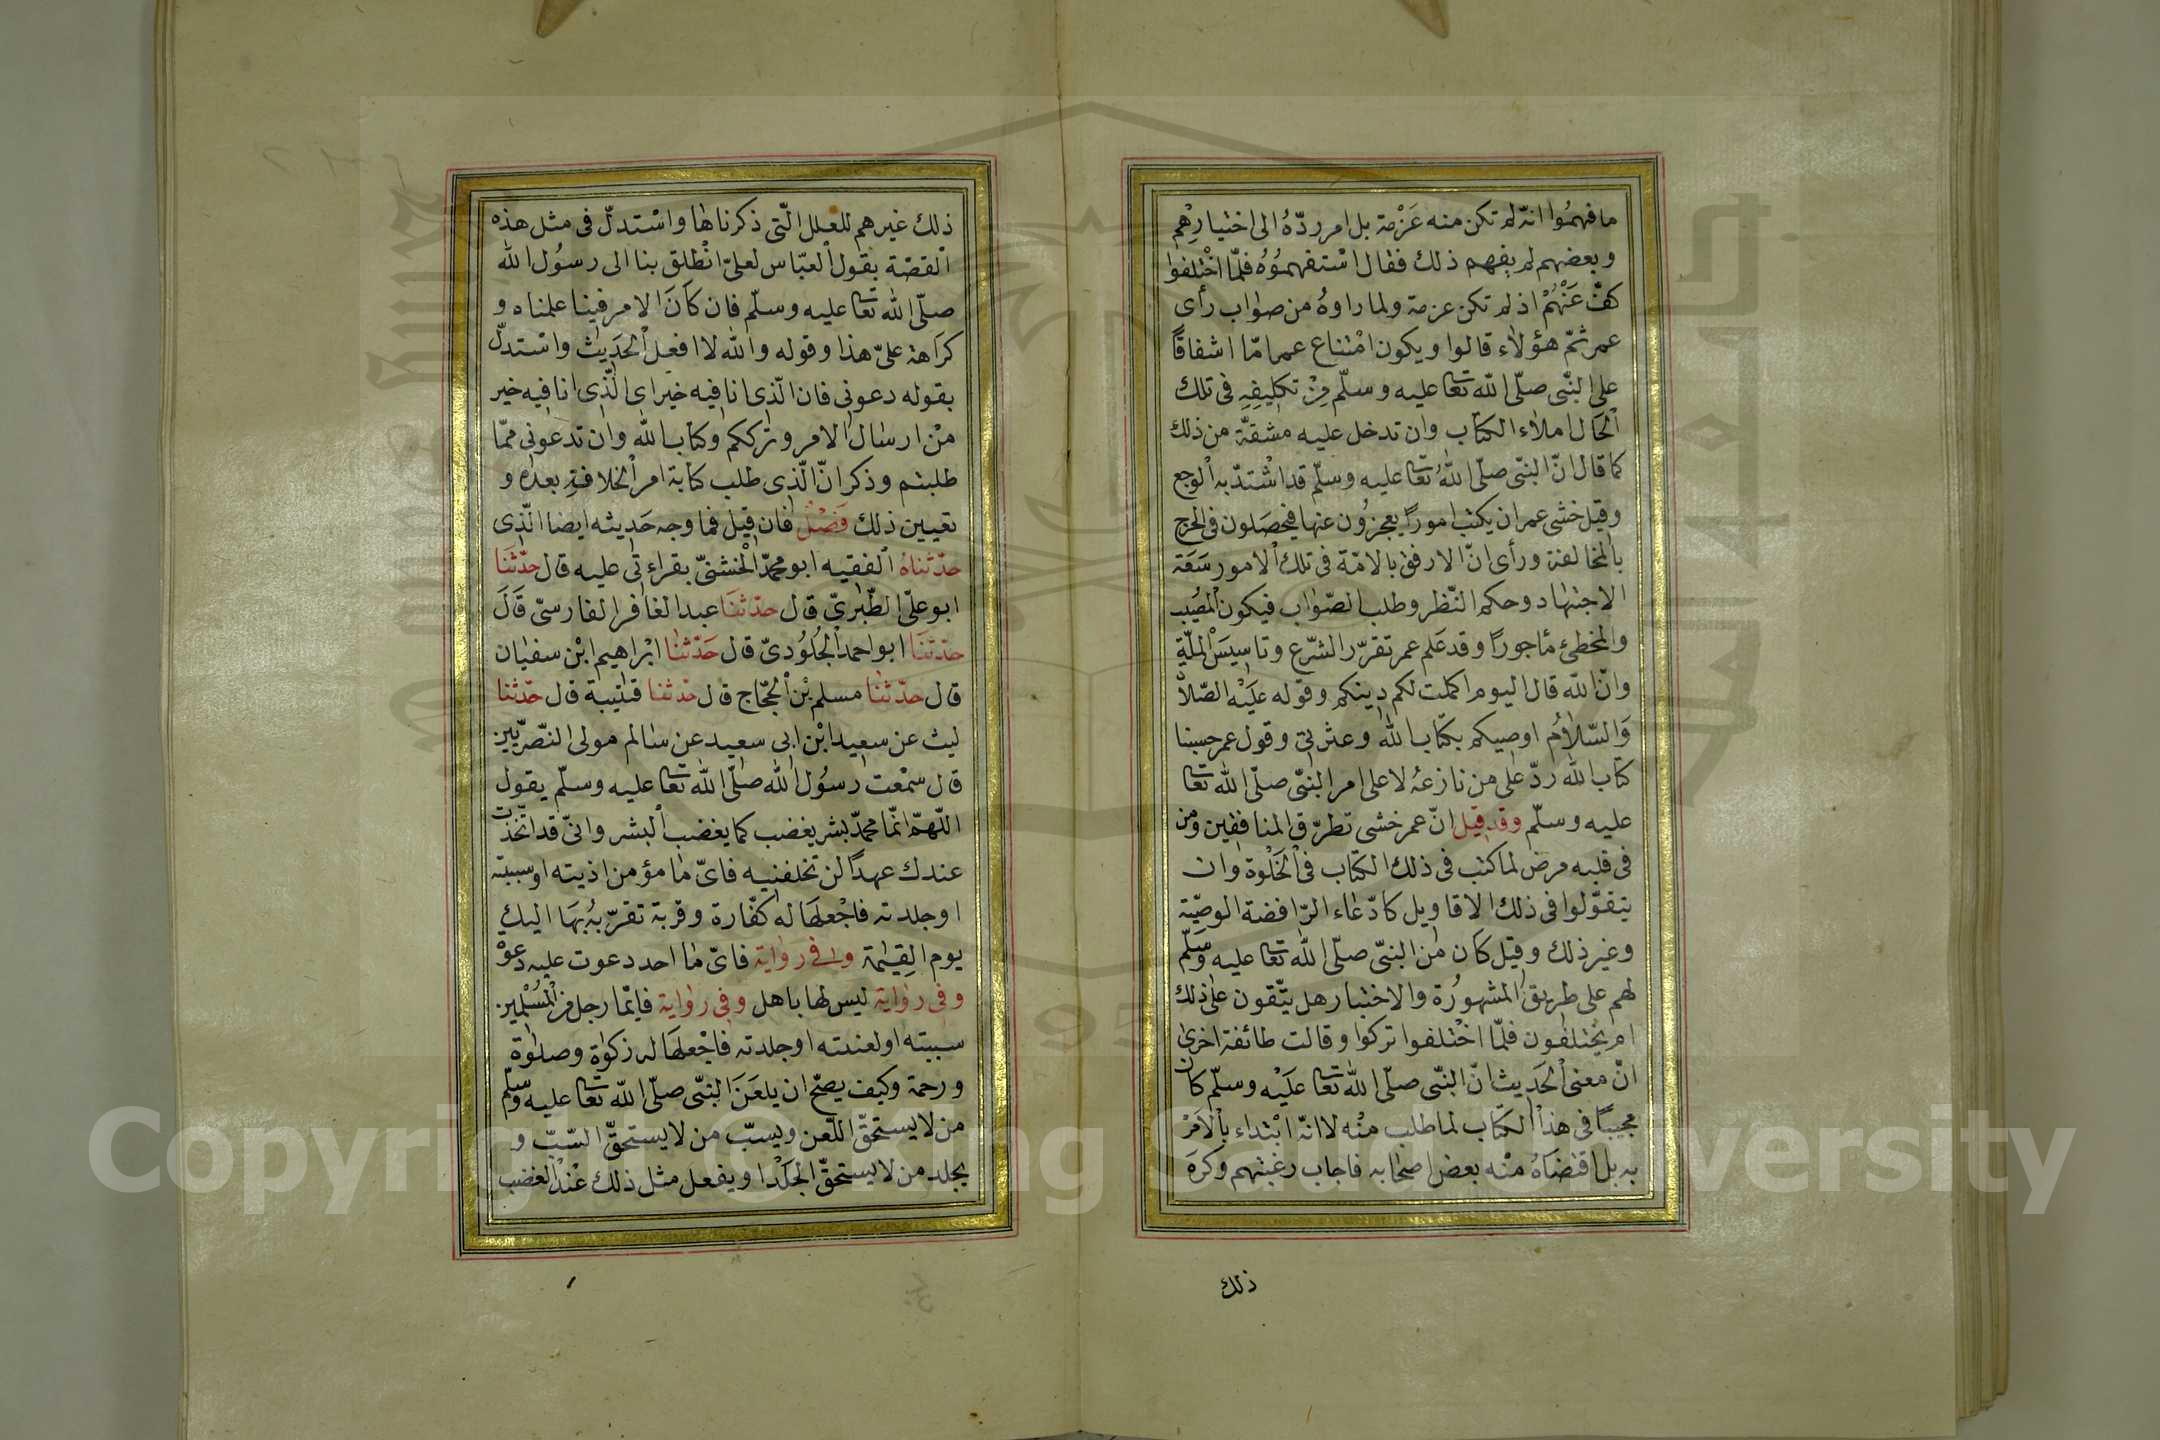 ما فهموا انّه لم تكن منه عَزْمة بل امر ردّهُ الى اختيارِهْم
وبعضهم لم يفهم ذلك فقال اسْتفهموُهُ فلمّا اخْتلفوا
كفّ عَنْهُمْ اذ لم تكن عزمة ولما راوهُ من صوٰاب رأى
عمر ثمّ هؤلاٰء قالوا ويكون امْتناع عمر امّا اشفاقاً
على النّبى صلّى اللّه تعا عليه وسلّم مِنْ تكليفِهِ فى تلك
الْحَال املاٰء الكتاب وان تدخل عليه مشقّة من ذلك
كما قال انّ النبّى صلّى اللّهُ تعا عليه وسلّم قد اشْتدّ به الْوجع
وقيل خشى عمر ان يكتب اموراً يعجزوُن عنها فيحصَلون فى الحرج
بالمخالفة ورأى انّ الارفق بالامّة فى تلك الْامور سَعَة
الاجتهاد وحكم النّظر وطلب الصّوٰاب فيكون الْمصُيب
والمخطئ مأجوراً وقد عَلم عمر تقرّر الشّرع وتاسيسَ الْملّةِ
وانّ اللّه قال اليوم اكملت لكم دينكم وقوله عَلَيْه الصّلاٰة
وَالسّلاٰمُ اوصيكم بكتاب اللّه وعترتى وقول عمر حسبنا
كتاب اللّه ردّ على من نازعهُ لا على امر النبّى صلّى اللّه تعا
عليه وسلّم وقد قيل انّ عمر خشى تطرّق المنافقين ومن
فى قلبه مرض لما كتب فى ذلك الكتاب فى الْخَلْوة وان
يتقوّلوا فى ذلك الاقاويل كادّعٰاء الرّافضة الوصيّة
وغير ذلك وقيل كان من النبّى صلّى اللّه تعا عليه وسلّم
لهم على طريق المشهوُرة والاختبار هل يتّقون على ذلك
ام يْختلفون فلمّا اخْتلفوا تركوا وقالت طائفة اخرى
انّ معنى الْحَديث انّ النبّى صلّى اللّه تعا عَلَيْه وسلّم كان
مجيبًا فى هذا الكتاب لما طلب منْه لا انّه ابْتداء بالْامَرْ
به بل اقتضَاهُ منْه بعض اصْحابه فاجاب رغبتهم وكرَه
ذلك
ذلك غيرهم للعلل الّتى ذكرناهٰا واسْتدلّ فى مثل هذه
الْقصّة بقول الْعبّاس لعلىّ انْطلق بنا الى رسوُل اللّه
صلّى اللّه تعا عليه وسلّم فان كَانَ الامر فينا علمناه و
كراهة علىّ هذا وقوله واللّه لا افعل الْحَديث واسْتدلّ
بقوله دعونى فان الّذى انا فيه خيراى الّذى انا فيه خير
منْ ارسٰال الامر وترككم وكتاب اللّه وان تدعونى ممّا
طلبتم وذكر انّ الّذى طلب كتابة امر الْخلافةِ بعده و
تعيين ذلك فَصْلٌ فان قيل فما وجه حَديثه ايضا الّذى
حدّثناهُ الْفقيه ابو محمّد الْخشنىّ بقراءتى عليه قال حدّثنَا
ابو علّى الطّبرىّ قال حدّثنَا عبد الغافر الفارسىّ قَالَ
حدّثنَا ابو احمد الْجُلُودىّ قال حَدّثنٰا ابْراهيم ابْن سفيٰان
قال حدّثنٰا مسلم بْن الْحجّاج قال حدثنا قتيبة قال حدّثنا
ليث عن سعيد ابْن ابى سعيد عن سٰالم مولى النّصريّين
قال سمْعت رسوُل اللّه صلّى اللّه تعا عليه وسلّم يقول
اللّهمّ انّما محمدّ بشر يغضب كما يغضب الْبشر وانّى قد اتّخذت
عندك عهداً لن تخلفنيه فاىّ مٰا مؤمن اذيته او سببته
او جلدته فاجْعلها له كفّارة وقربة تقرّبهُ بهَا اليك
يوم القِيٰمة وفى روٰاية فاىّ مٰا احد دعوت عليه دعوْ
وفى روٰاية ليس لها باهل وفى روٰاية فايّما رجل من الْمسُلمين
سببته او لعنته او جلدته فاجْعلهَا له زكوٰة وصلوٰة
ورحمة وكيف يصّح ان يلعَنَ النبّى صلّى اللّه تعا عليه وسلّم
من لا يستحقّ اللّعن ويسبّ من لا يستحقّ السّبّ و
يجلد من لا يستحقّ الجَلْد او يفعل مثل ذلك عنْد الْغضب